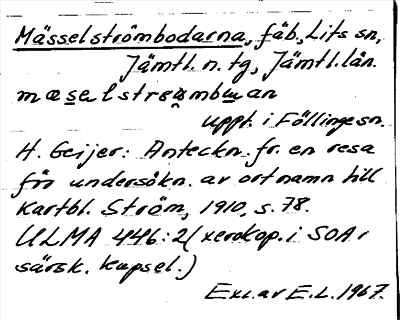 Mässelströmbodarna, fäb., Lits sn,
Jämtl. n. tg, Jämtl. län.
uppt. i Föllinge sn.
H. Geijer: Anteckn. fr. en resa
för undersökn. av ortnamn till
Kartbl. Ström, 1910, s. 78.
ULMA 446:2 (xerokop. i SOA i
särsk. kapsel.)
Exc. av E.L. 1967.